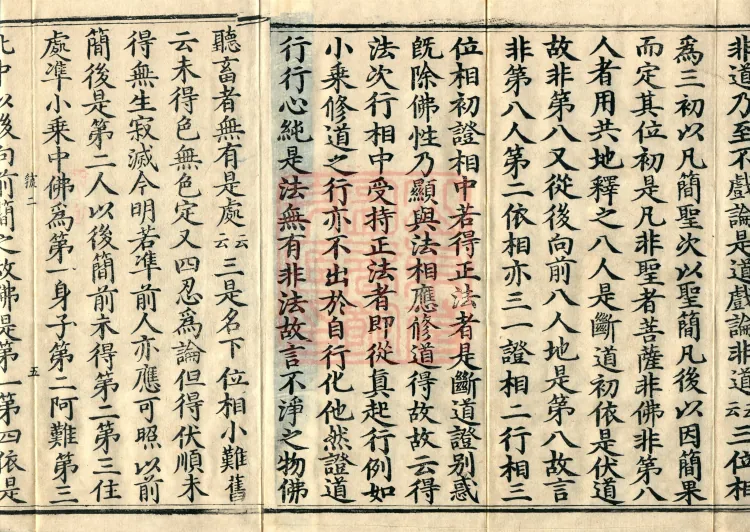 非道乃至不戲論是道戲論非道云云三位相
為三初以凡簡聖次以聖簡凡後以因簡果
而定其位初是凡非聖者菩薩非佛非第八
人者用共地釋之八人是斷道初依是伏道
故非第八又從後向前八人地是第八故言
非第八人第二依相亦三一證相二行相三
位相初證相中若得正法者是斷道證別惑
既除佛性乃顯與法相應修道得故故云得
法次行相中受持正法者即從真起行例如
小乘修道之行亦不出於自行化他然證道
行行心純是法無有非法故言不淨之物佛
聽畜者無有是處云云三是名下位相小難舊
云未得色無色定又四忍為論但得伏順未
得無生寂滅今明若準前人亦應可照以前
簡後是第二人以後簡前未得第二第三住
處準小乘中佛為第一身子第二阿難第三
此中以後向前簡之故佛是第一第四依是
五